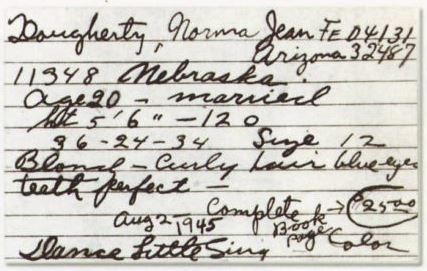 Dougherty, Norma Jean FE 04131
Arizona 32487
11348 Nebraska.
age 20 - married
hht 5'6" - 120
36-24-34 Size 12
Blond - Curly hair blue eyes
teeth perfect -
Aug 2 - 1945 Complete Book page → $25.00
Color
Dance Little Sing